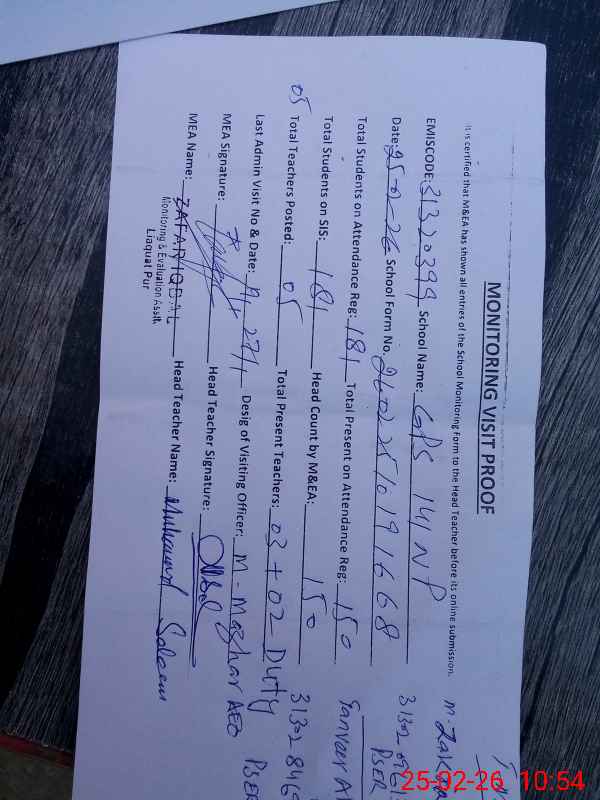 MONITORING VISIT PROOF
It is certified that M&EA has shown all entries of the School Monitoring Form to the Head Teacher before its online submission.
EMISCODE: 31320399 School Name: GPS 141 NP
Date: 25-02-26 School Form No. 26022510191668
Total Students on Attendance Reg: 181 Total Present on Attendance Reg: 150
Total Students on SIS: 181 Head Count by M&EA: 150
05 Total Teachers Posted: 05 Total Present Teachers: 03 + 02 Duty
Last Admin Visit No & Date: Desig of Visiting Officer: M-Mazhar AEO
MEA Signature: Head Teacher Signature:
MEA Name: ZAFAR IQBAL Head Teacher Name: Muhammad Saleem
Monitoring & Evaluation Asstt.
Liaquat Pur
PSER
Tanveer
PSER
25-02-26 10:54